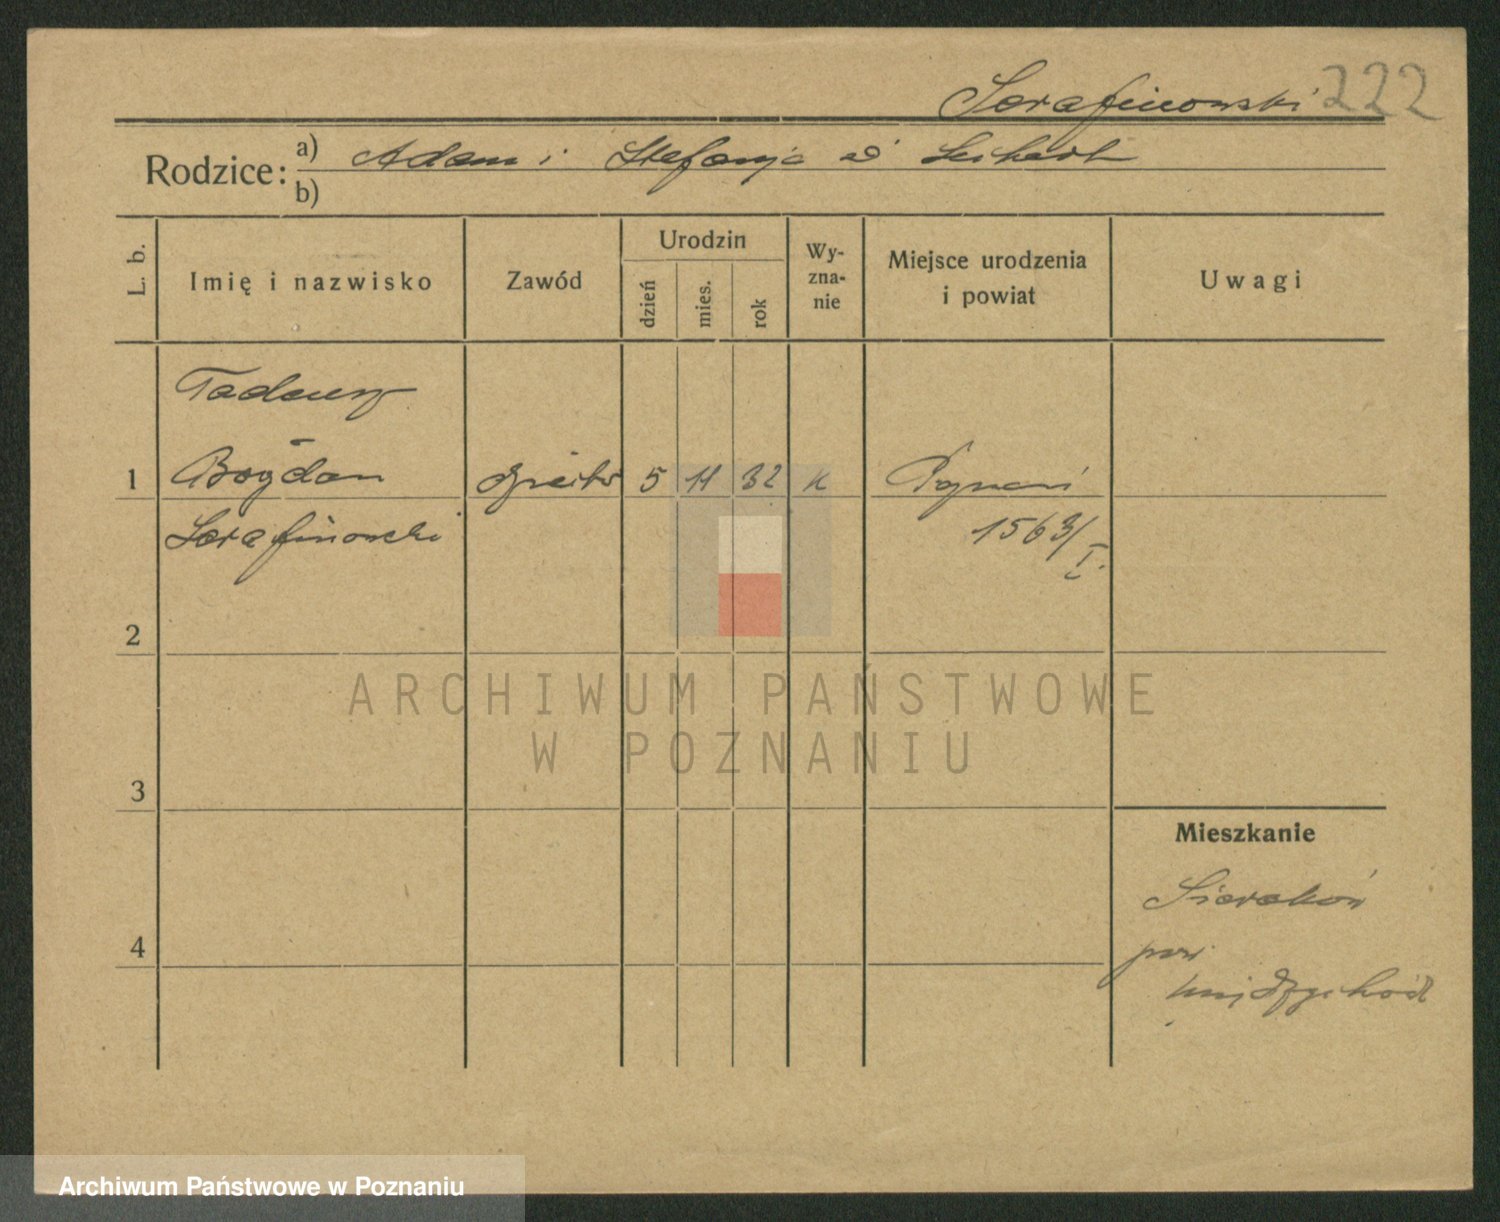 Serafinowski 222
Rodzice: a) Adam i Stefanja z
b)
L. b.
Imię i nazwisko
Zawód
Urodzin
dzień
mies.
rok
Wy-
zna-
nie
Miejsce urodzenia
i powiat
Uwagi
Tadeusz
1 Bogdan dziecko 5 11 32 k Poznań
Serafinowski 1563/I.
2
ARCHIWUM PAŃSTWOWE
W POZNANIU
3
Mieszkanie
Sieraków
pow.
4
Międzychód
Archiwum Państwowe w Poznaniu